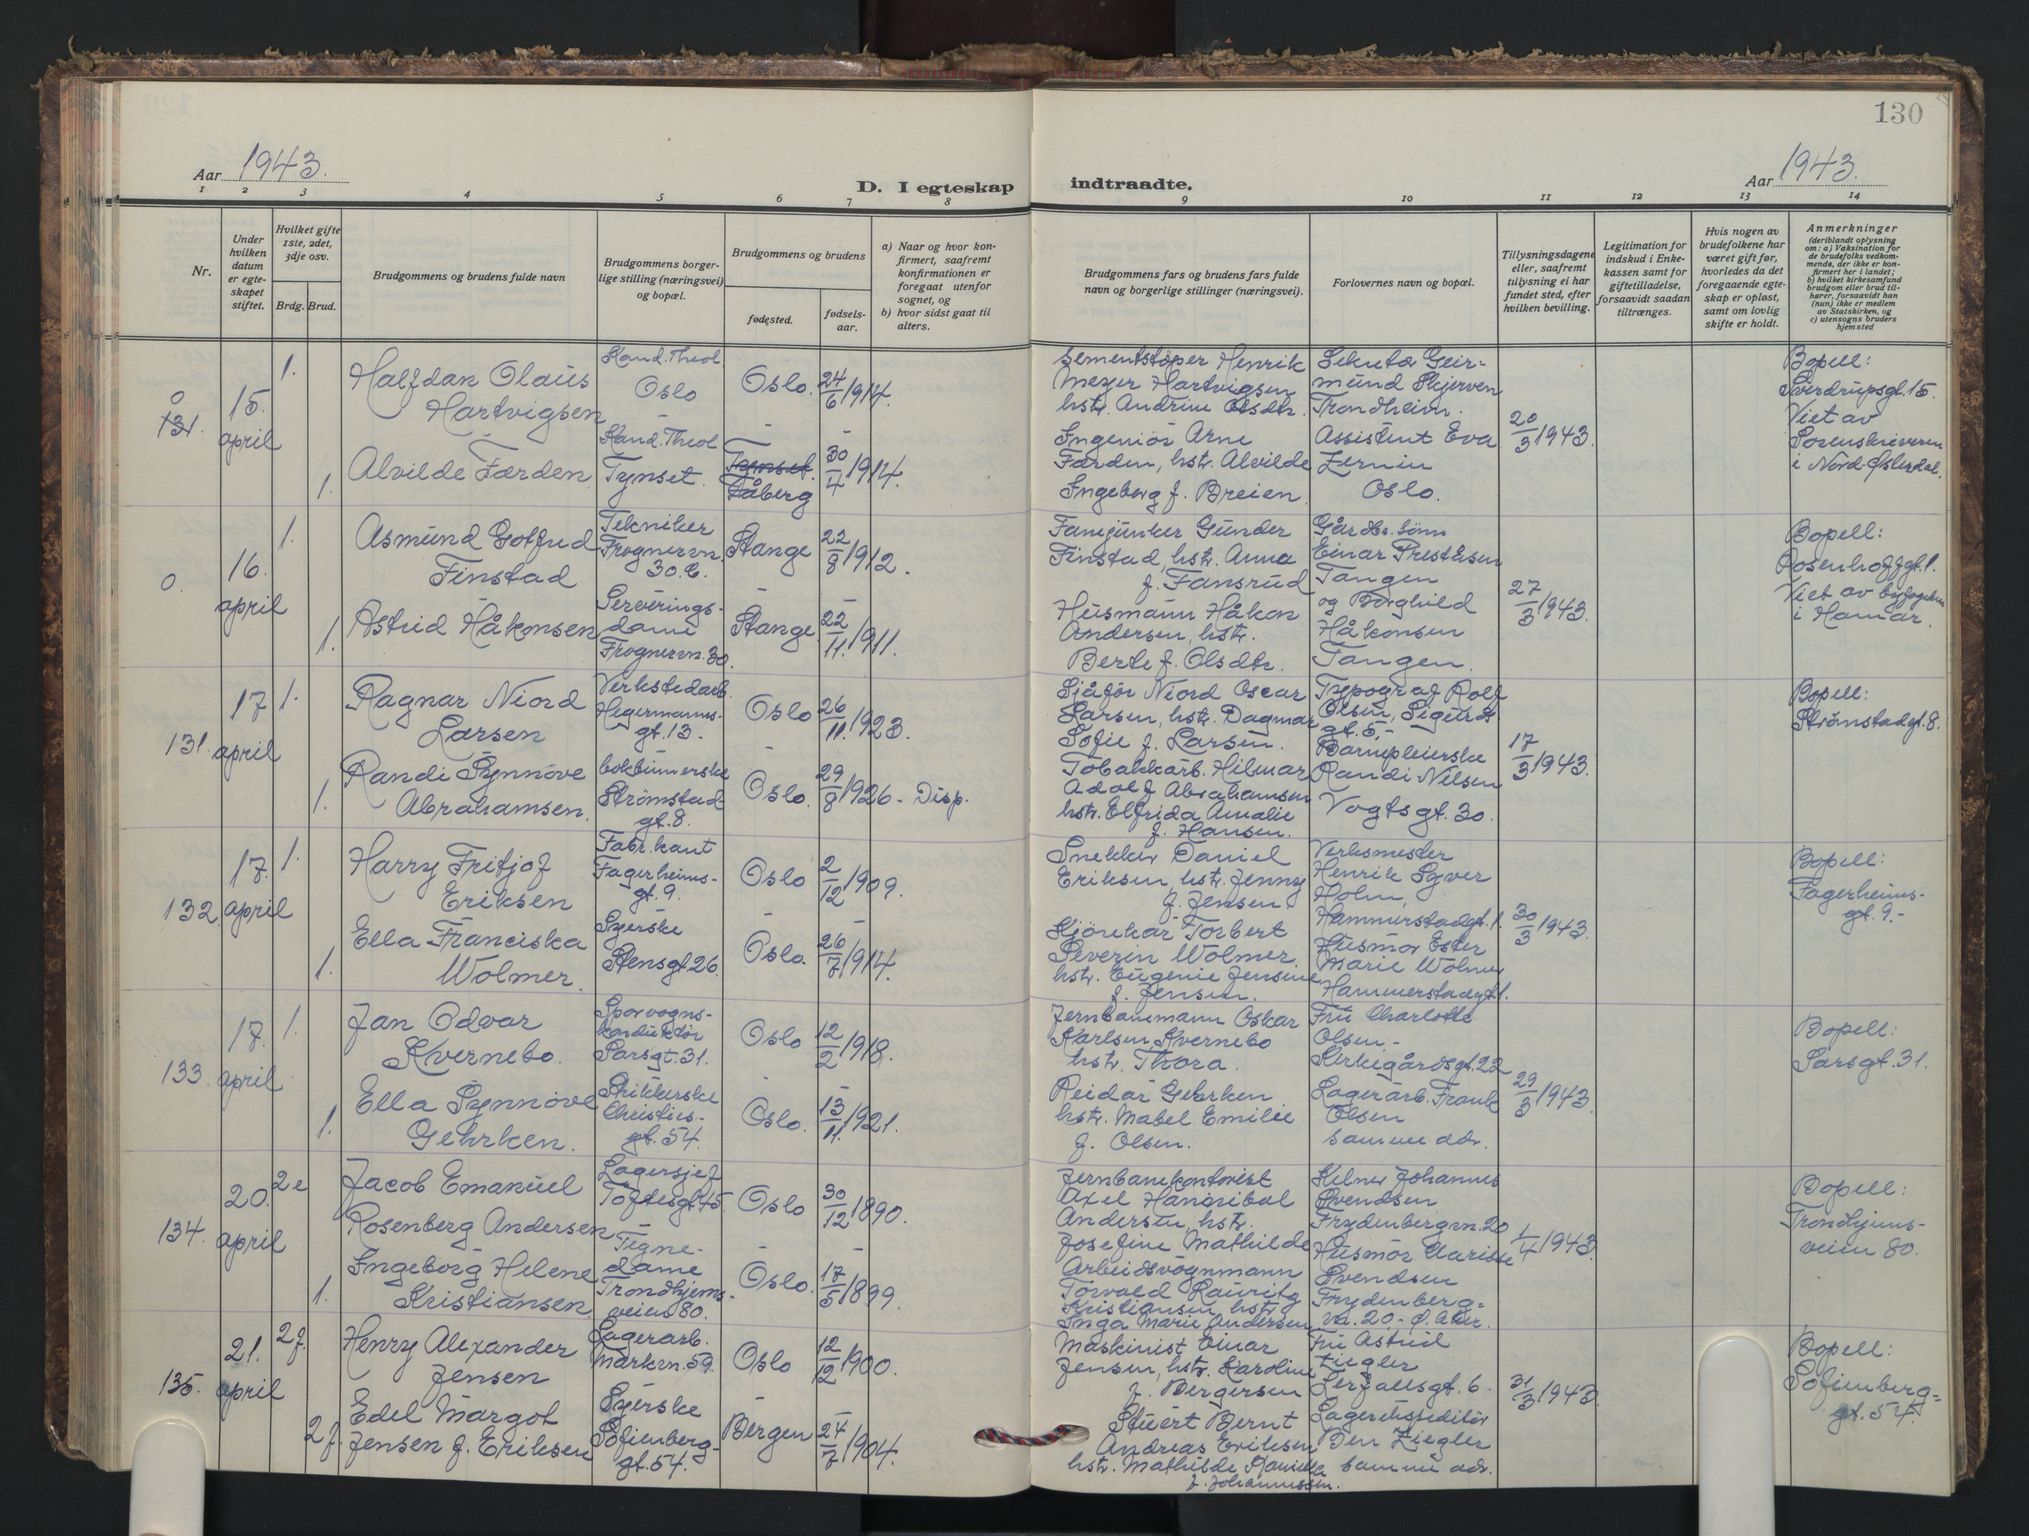 130
Aar 1943.
D. I egteskap indtraadte.
Aar 1943.
1 2 3 4 5 6 7 8 9 10 11 12 13 14
Nr.
Under hvilken datum er egteskapet stiftet.
Hvilket gifte 1ste, 2det, 3dje osv.
Brdg. Brud.
Brudgommens og brudens fulde navn
Brudgommens borgerlige stilling (næringsvei) og bopæl.
Brudgommens og brudens
fødested. fødselsaar.
a) Naar og hvor konfirmert, saafremt konfirmationen er foregaat utenfor sognet, og
b) hvor sidst gaat til alters.
Brudgommens fars og brudens fars fulde navn og borgerlige stillinger (næringsvei).
Forlovernes navn og bopæl.
Tillysningsdagene eller, saafremt tillysning ei har fundet sted, efter hvilken bevilling.
Legitimation for indskud i Enkekassen samt for giftetilladelse, forsaavidt saadan tiltrænges.
Hvis nogen av brudefolkene har været gift før, hvorledes da det foregaaende egteskap er opløst, samt om lovlig skifte er holdt.
Anmerkninger
(deriblandt oplysning om: a) Vaksination for de brudefolks vedkommende, der ikke er konfirmert her i landet;
b) hvilket kirkesamfund brudgom eller brud tilhører, forsaavidt han (hun) ikke er medlem av Statskirken, og
c) utensogns bruders hjemsted
0
131.
15. april
1.
Halfdan Olaus
Hartvigsen
Kand. Theol
Oslo
Oslo. 24/6 1914.
1.
Alvilde Færden
Kand. Theol
Tynset.
Tynset.
Fåberg
30/4 1914.
Sementstøper Henrik
Meyer Hartvigsen
hstr. Andrine Olsdtr.
Ingeniør Arne
Færden, hstr. Alvilde
Ingeborg f. Breien.
Sekretær Geir-
mund Skjerven
Trondheim.
Assistent Eva
Zernin
Oslo.
20/3 1943.
Bopell:
Sverdrupsgt. 15.
Viet av
Sorenskriveren
i Nord-Østerdal.
0.
16. april
1.
Asmund Gotfred
Finstad
Tekniker
Frognervn.
30.C.
Stange 22/8 1912.
1.
Astrid Håkonsen
Serverings-
dame
Frognervn. 30.
Stange 22/11. 1911.
Fanejunker Gunder
Finstad, hstr. Anna
f. Fansrud
Husmann Håkon
Andersen, hstr.
Berte f. Olsdtr.
Gårdbr. sønn
Einar Prestersen
Tangen
og Borghild
Håkonsen
Tangen.
27/3 1943.
Bopell:
Rosenhoffgt. 1.
Viet av byfogden
i Hamar.
131.
17 april
1.
Ragnar Niord
Larsen
Verkstedarb.
Hegermanns-
gt. 13.
Oslo 26/11. 1923.
1.
Randi Synnøve
Abrahamsen.
bokbinnerske
Strømstad
gt. 8.
Oslo. 29/8 1926 - Disp.
Sjåfør Niord Oscar
Larsen, hstr. Dagmar
Sofie f. Larsen.
Tobakkarb. Hilmar
Adolf Abrahamsen
hstr. Elfrida Amalie
f. Hansen.
Typograf Rolf
Olsen, Sigurds
gt. 5.-
Barnepleierske
Randi Nilsen
Vogtsgt. 30.
17/3 1943.
Bopell:
Strømstadgt. 8.
132.
17. april
1.
Harry Fritjof
Eriksen
Fabr.kant
Fagerheims-
gt. 9.
Oslo 2/12 1909.
1.
Ella Franciska
Wolmer.
Syerske
Stensgt 26.
Oslo. 26/7 1914.
Snekker Daniel
Eriksen, hstr. Jenny
f. Jensen
Kjørekar Torbert
Severin Wolmer.
hstr. Eugenie Jensine
f. Jensen.
Verksmester
Henrik Syver
Holm,
Hammerstadgt. 1.
Husmor Ester
Marie Wolmer
Hammerstadgt. 1.
30/3 1943.
Bopell:
Fagerheims-
gt. 9.-
133.
17. april
1.
Jan Odvar
Kvernebo.
Sporvogns-
konduktør
Sarsgt. 31.
Oslo 12/2 1918.
1.
Ella Synnøve
Gehrken.
Strikkerske
Christies-
gt. 54.
Oslo. 13/11. 1921.
Jernbanemann Oskar
Karlsen, Kvernebo
hstr. Thora.
Reidar Gehrken
hstr. Mabel Emilie
f. Olsen.
Fru Charlotte
Olsen -
Kirkegårdsgt. 22
Lagerarb. Frank
Olsen
samme adr.
29/3 1943.
Bopell:
Sarsgt. 31.
134.
20. april
2e
Jacob Emanuel
Rosenberg Andersen
Lagersjef
Toftesgt. 45.
Oslo 30/12 1890.
1.
Ingeborg Helene
Kristiansen
Tegne-
dame
Trondhjems-
veien 80.
Oslo. 17/5 1899.
Jernbanekontorist
Axel Hannibal
Andersen, hstr.
Josefine Mathilde
Arbeidsvognmann
Torvald Lauritz
Kristiansen hstr.
Inga Marie Andersen
Kelner Johannes
Svendsen
Frydenbergvn. 20
Husmor Clarisse
Svendsen
Frydenberg-
vn. 20. - Ø. Aker.
1/4 1943.
Bopell:
Trondhjems-
veien 80.
135.
21. april
2f.
Henry Alexander
Jensen
Lagerarb.
Markvn. 59.
Oslo 12/12 1900.
2f.
Edel Margot
Jensen f. Eriksen
Syerske
Sofienberg-
gt. 54.
Bergen 24/7 1904.
Maskinist Einar
Jensen, hstr. Karoline
f. Bergersen
Stuert Bernt
Andreas Eriksen
hstr. Mathilde
f. Johannessen.
Fru Astrid
Ziegler
Lerfallsgt. 6.
Lagerekspeditør
Ben Ziegler
samme adr.
31/3 1943.
Bopell:
Sofienberg-
gt. 54.